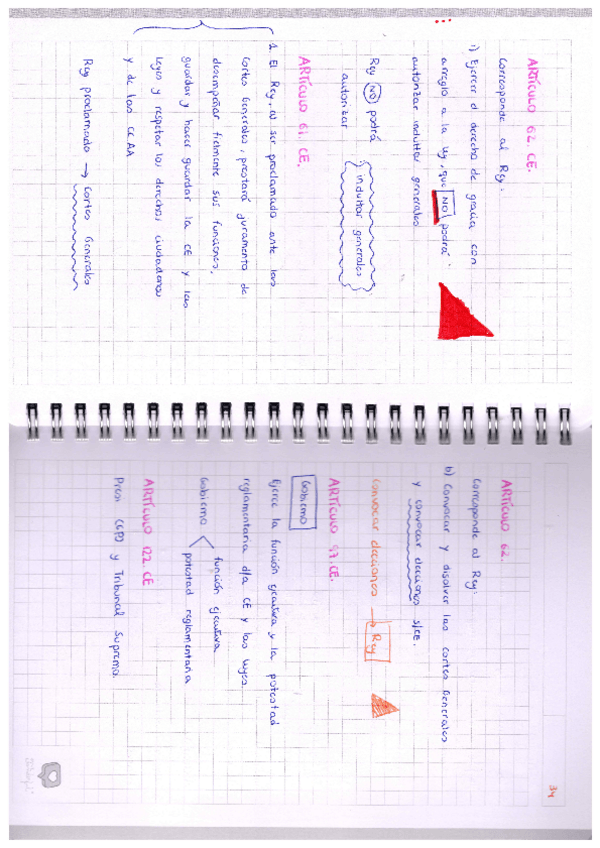 ARTÍCULO 62. CE.
Corresponde al Rey:
i) Ejercer el derecho de gracia con
arreglo a la ley, que NO podrá
autorizar indultos generales
Rey NO podrá
autorizar
indultos generales
ARTÍCULO 61. CE.
1. El Rey, al ser proclamado ante las
Cortes Generales, prestará juramento de
desempeñar fielmente sus funciones,
guardar y hacer guardar la CE y las
leyes y respetar los derechos ciudadanos
y de las CCAA
Rey proclamado → Cortes Generales
34
ARTÍCULO 62.
Corresponde al Rey:
b) Convocar y disolver las Cortes Generales
y convocar elecciones s/CE.
Convocar elecciones → Rey
ARTÍCULO 97. CE.
Gobierno
Ejerce la función ejecutiva y la potestad
reglamentaria d/a CE y las leyes.
función ejecutiva
Gobierno <
potestad reglamentaria
ARTÍCULO 122. CE
Presi CGPJ y Tribunal Supremo.